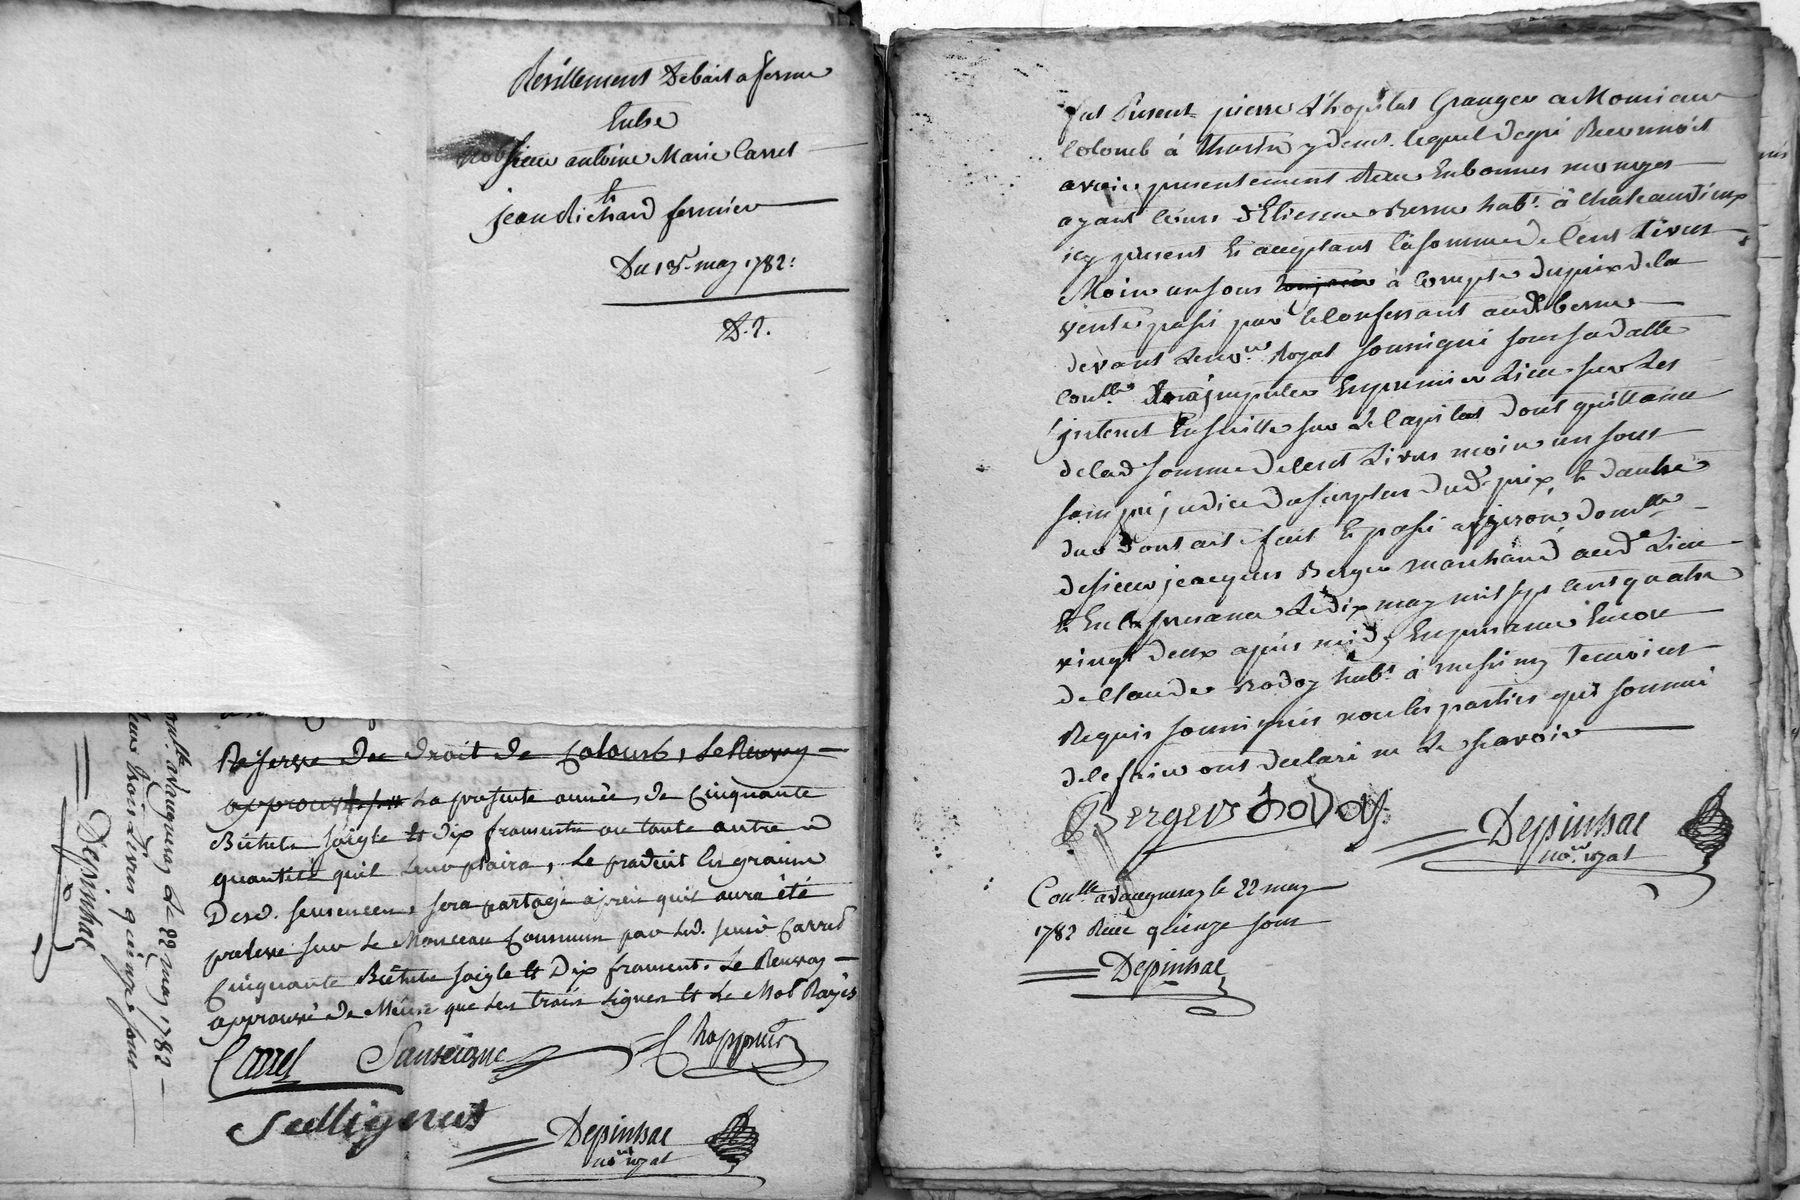 Résillement de bail a ferme
Entre
sieur antoine Marie Carret
Et
jean Richard fermier
Du 18. may 1782:
D. 2.
Reserve du droit de Colomb, le Renvoy
approuvé la presente année, de Cinquante
Bichets soigle et dix froments ou toute autre
quantité quil leur plaira, Le produit En graine
Desd. semences, sera partagé après quil aura été
prelevé sur le Monceau Commun par led. sieur Carret
Cinquante Bichets soigle et Dix froment. Le Renvoy
approuvé de Même que les trois lignes et le Mot Rayés
Carret Sauseigne Chappuis
Sallignat
Depinhac
nore. royal
Conllé. a Vaugneray Le 22 may 1782
trois Livres quinze sous
Depinhac
fut Présent pierre L'hopital Granger a Monsieur
Colomb à thurin y demt. lequel de gré Reconnoit
avoir presentement Reçu En bonnes monoyes
ayant Cours d'Etienne Berne habt. à Chateauvieux
icy présent et acceptant la somme de Cent Livres
Moins un sous à Compte du prix de la
vente passée par le Confessant aud. Berne
devant Le nore. Royal soussigné sous sa datte
Conllée. Imputer En premier Lieu sur Les
interest Ensuitte sur Le Capital dont quittance
de lad. somme de Cent Livres moins un sous
sans préjudice du surplus dud. prix, et d'autre
du dont act. fait et passé a yzeron domlle.
de sieur jeacques Berger marchand aud. Lieu
et En sa presance Le dix may mil sept cent quatre
vingt deux après midy En presance Encore
de Claude Boday habt. à messimy temoins
Requis soussignés non les parties qui sommé
de le faire ont declaré ne Le scavoir
Berger Boday
Depinhac
nore. royal
Conllé. a Vaugneray le 22 may
1782 Reçu quinze sous
Depinhac